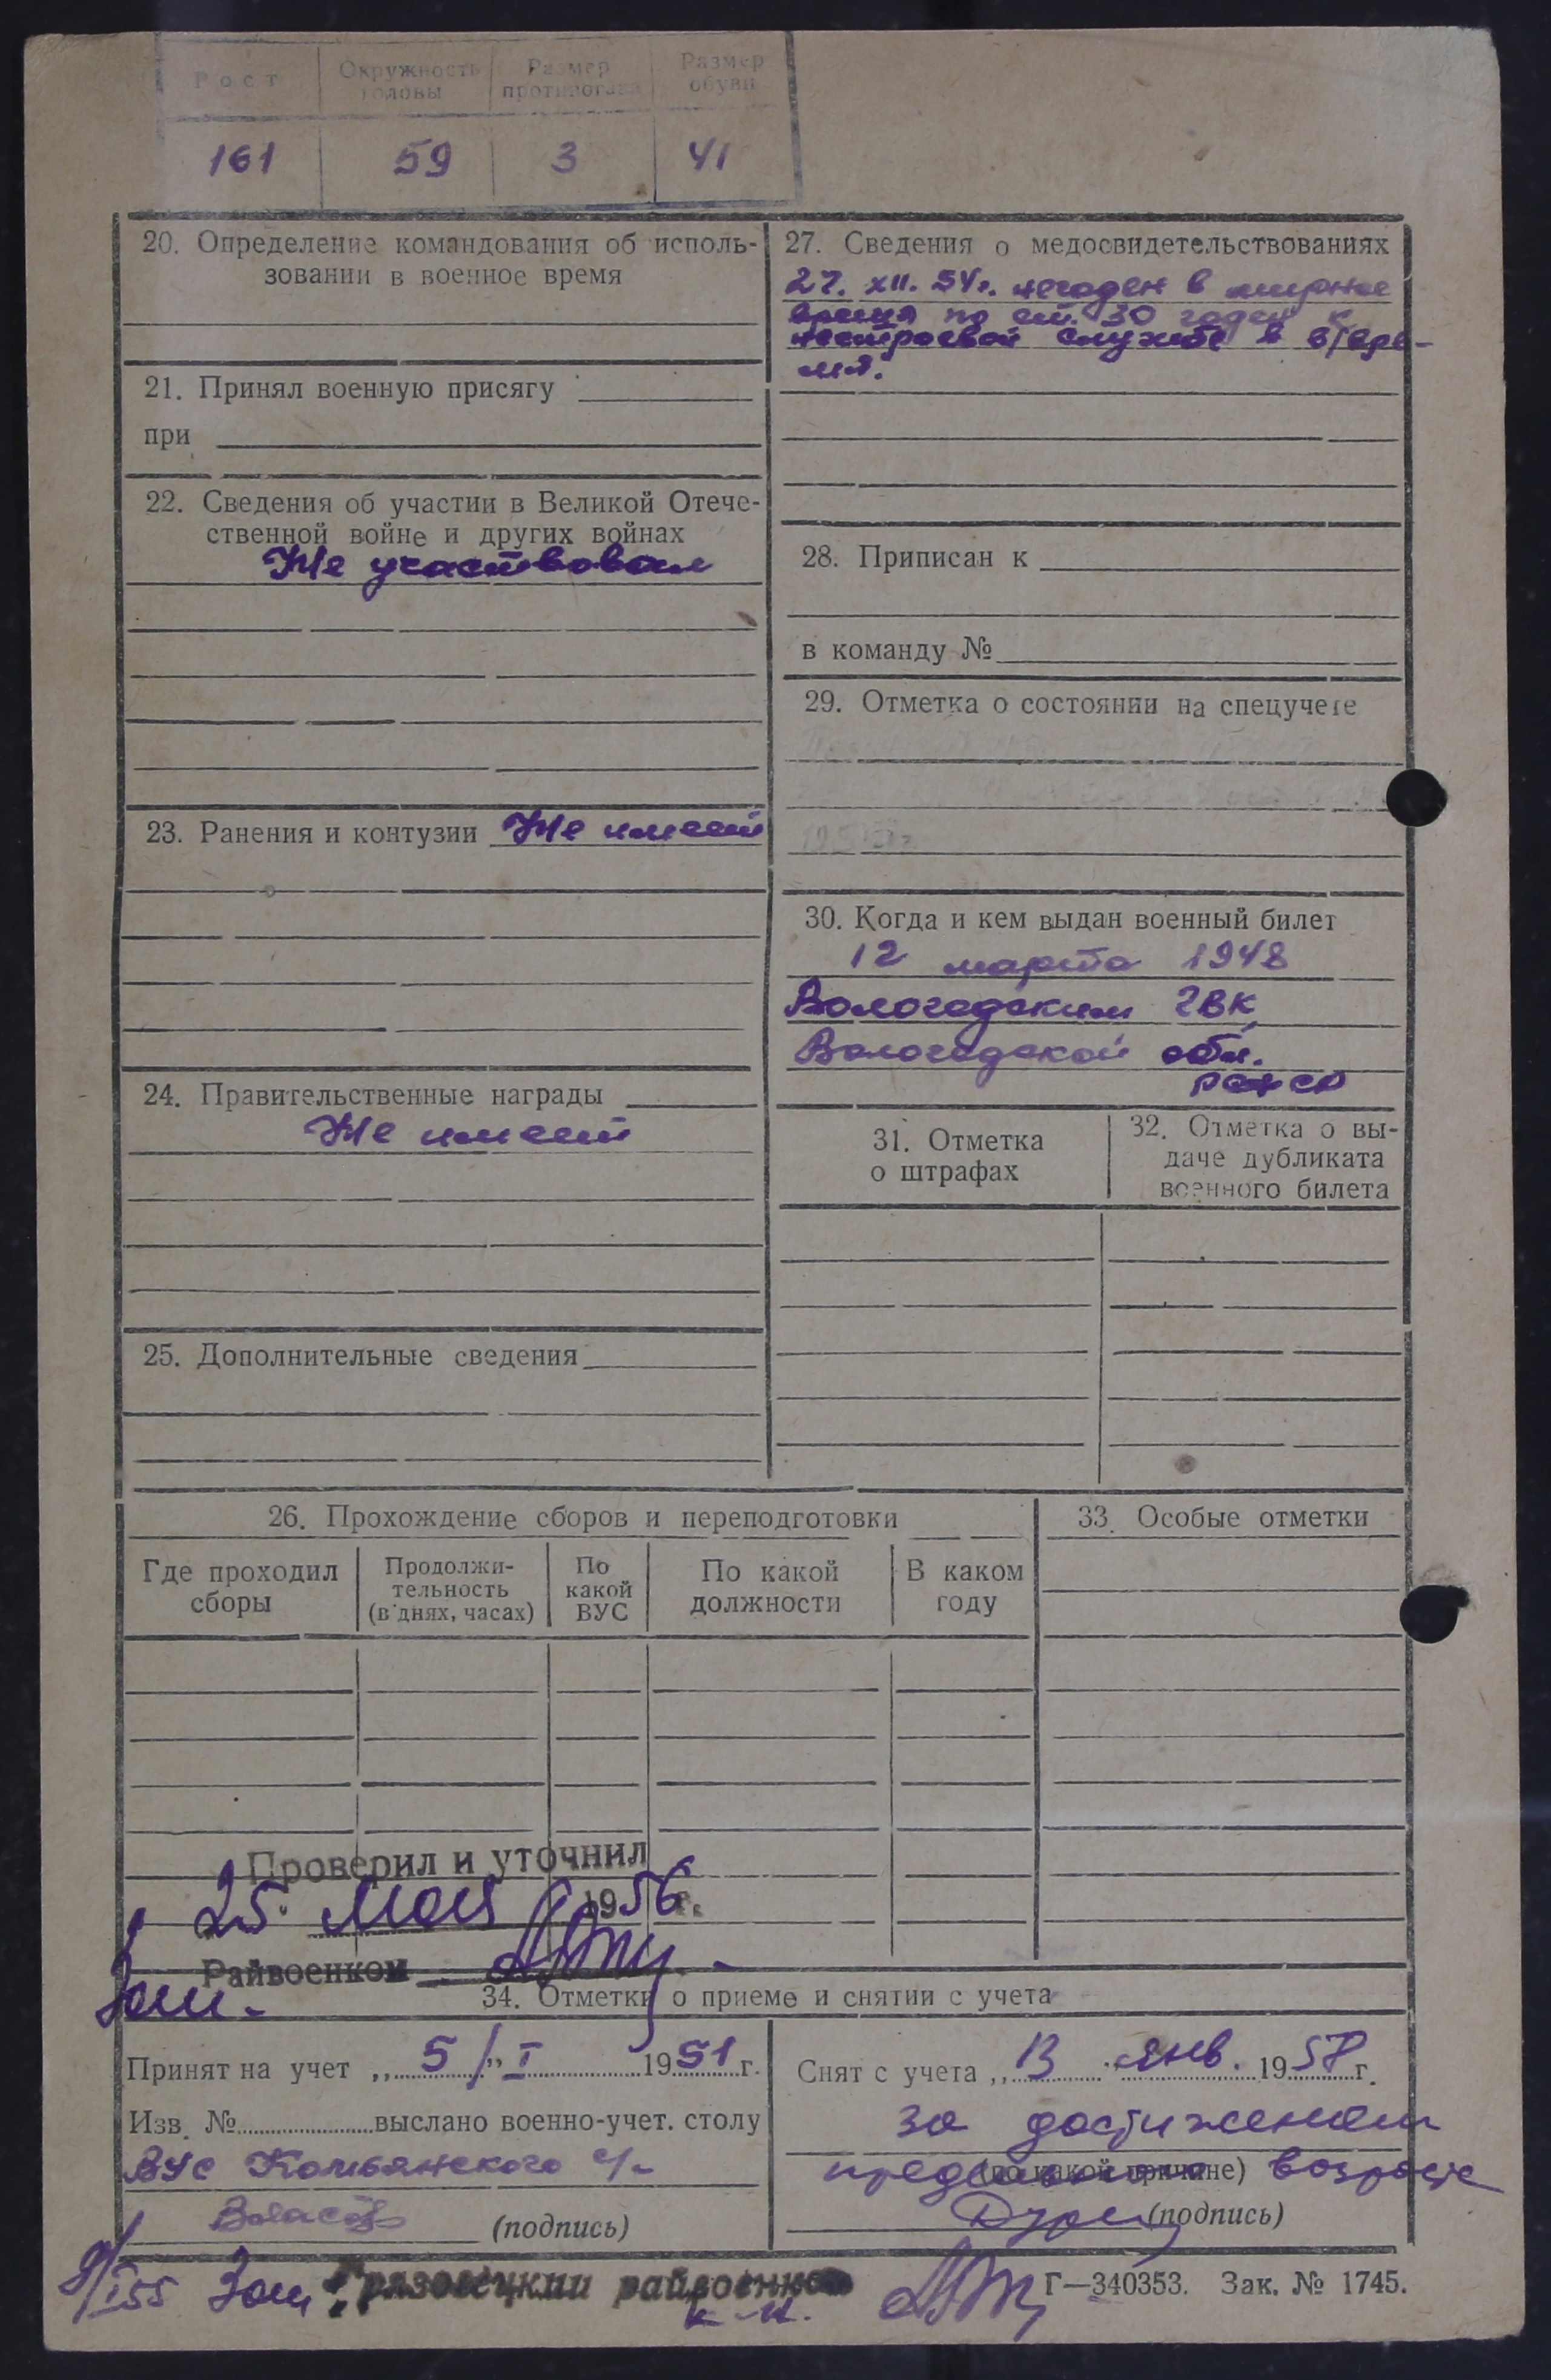 Рост Окружность головы Размер противогаза Размер обуви
161 59 3 41
20. Определение командования об исполь-
зовании в военное время
21. Принял военную присягу
при
22. Сведения об участии в Великой Отече-
ственной войне и других войнах
Не участвовал
23. Ранения и контузии Не имеет
24. Правительственные награды
Не имеет
25. Дополнительные сведения
27. Сведения о медосвидетельствованиях
27. XII. 54г. негоден в мирное
время по ст. 30 годен к
нестроевой службе в в/вре-
мя.
28. Приписан к
в команду №
29. Отметка о состоянии на спецучете
30. Когда и кем выдан военный билет
12 марта 1948
Вологодским ГВК
Вологодской обл.
РСФСР
31. Отметка
о штрафах
32. Отметка о вы-
даче дубликата
военного билета
26. Прохождение сборов и переподготовки
Где проходил
сборы
Продолжи-
тельность
(в днях, часах)
По
какой
ВУС
По какой
должности
В каком
году
33. Особые отметки
Проверил и уточнил
25. мая 1956 г.
Райвоенком
Зам.
34. Отметки о приеме и снятии с учета
Принят на учет „5/" I 1951 г.
Изв. № выслано военно-учет. столу
ВУС Комьянского с/с
(подпись)
Снят с учета „13 " янв. 1957 г.
за достижением
предельного возраста
(по какой причине)
(подпись)
9/I 55 Зам. Грязовецкий райвоенком
Г—340353. Зак. № 1745.